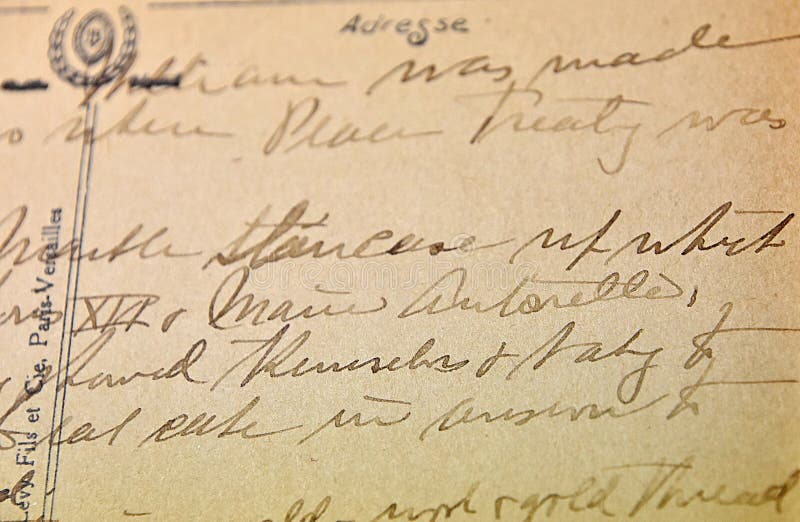 Adresse
William was made
o when Peace Treaty was
Marble Staircase up which
XVI & Marie Antoinette,
showed themselves & baby to
eat cake in answer to
gold thread
Levy Fils et Cie, Paris-Versailles